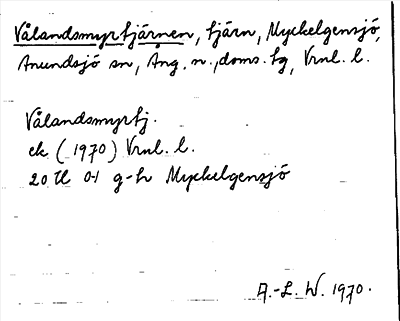 Vålandsmyrtjärnen, tjärn, Myckelgensjö,
Anundsjö sn, Ång. n., doms. tg, Vrnl. l.
Vålandsmyrtj.
ek (1970) Vrnl. l.
20 H 0-1 g-h Myckelgensjö
A.-L. W. 1970.